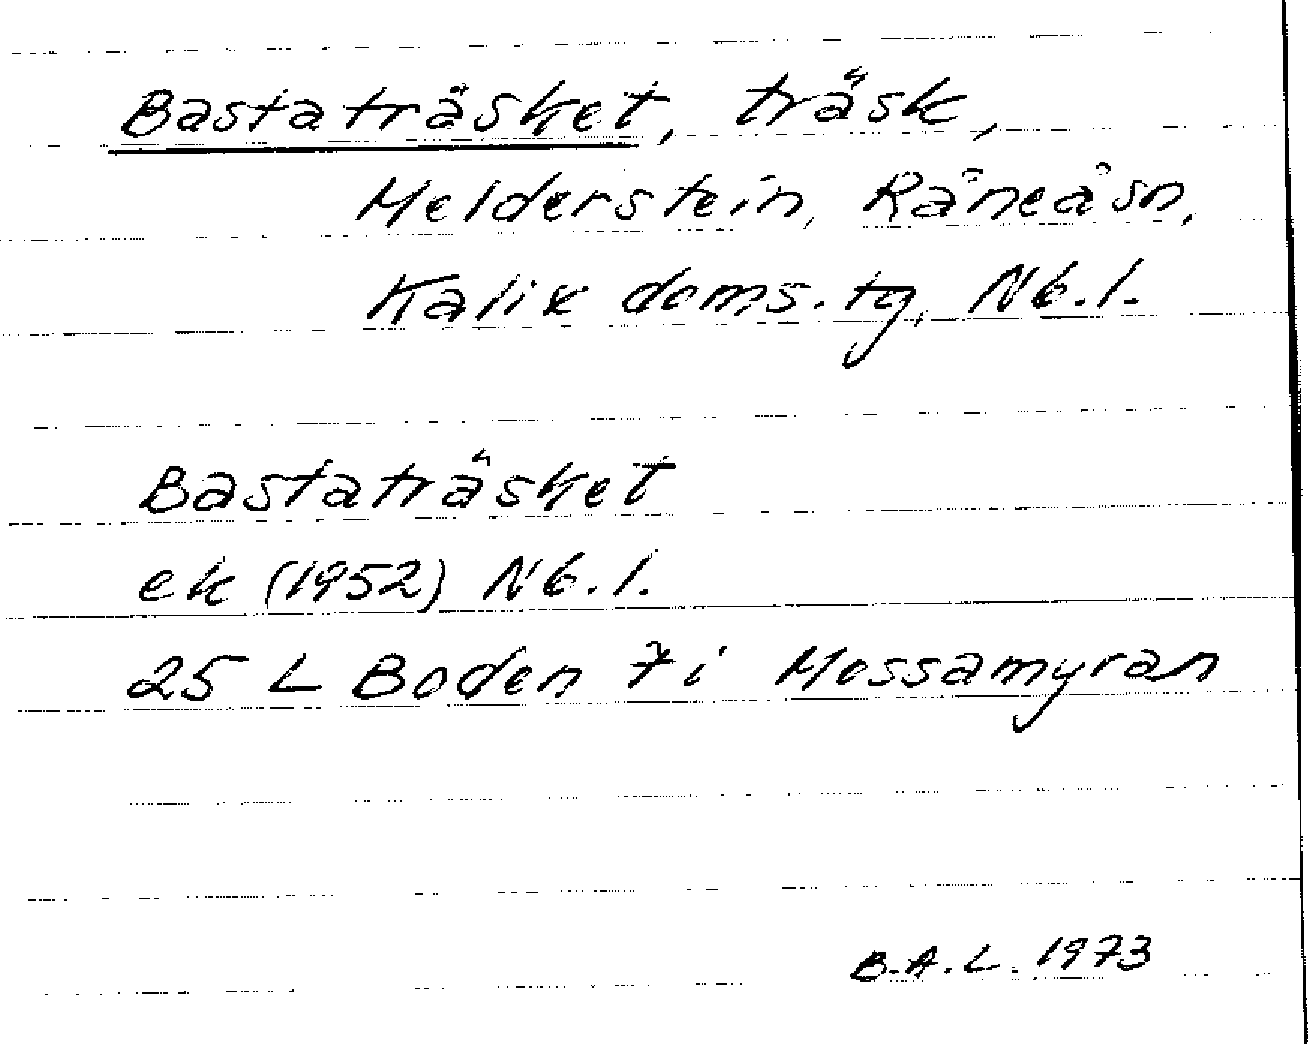 Bastaträsket, träsk,
Melderstein, Råneå sn,
Kalix doms. tg, Nb. l.
Bastaträsket
ek (1952) Nb. l.
25 L Boden 7 i Mossamyran
B.A.L. 1973